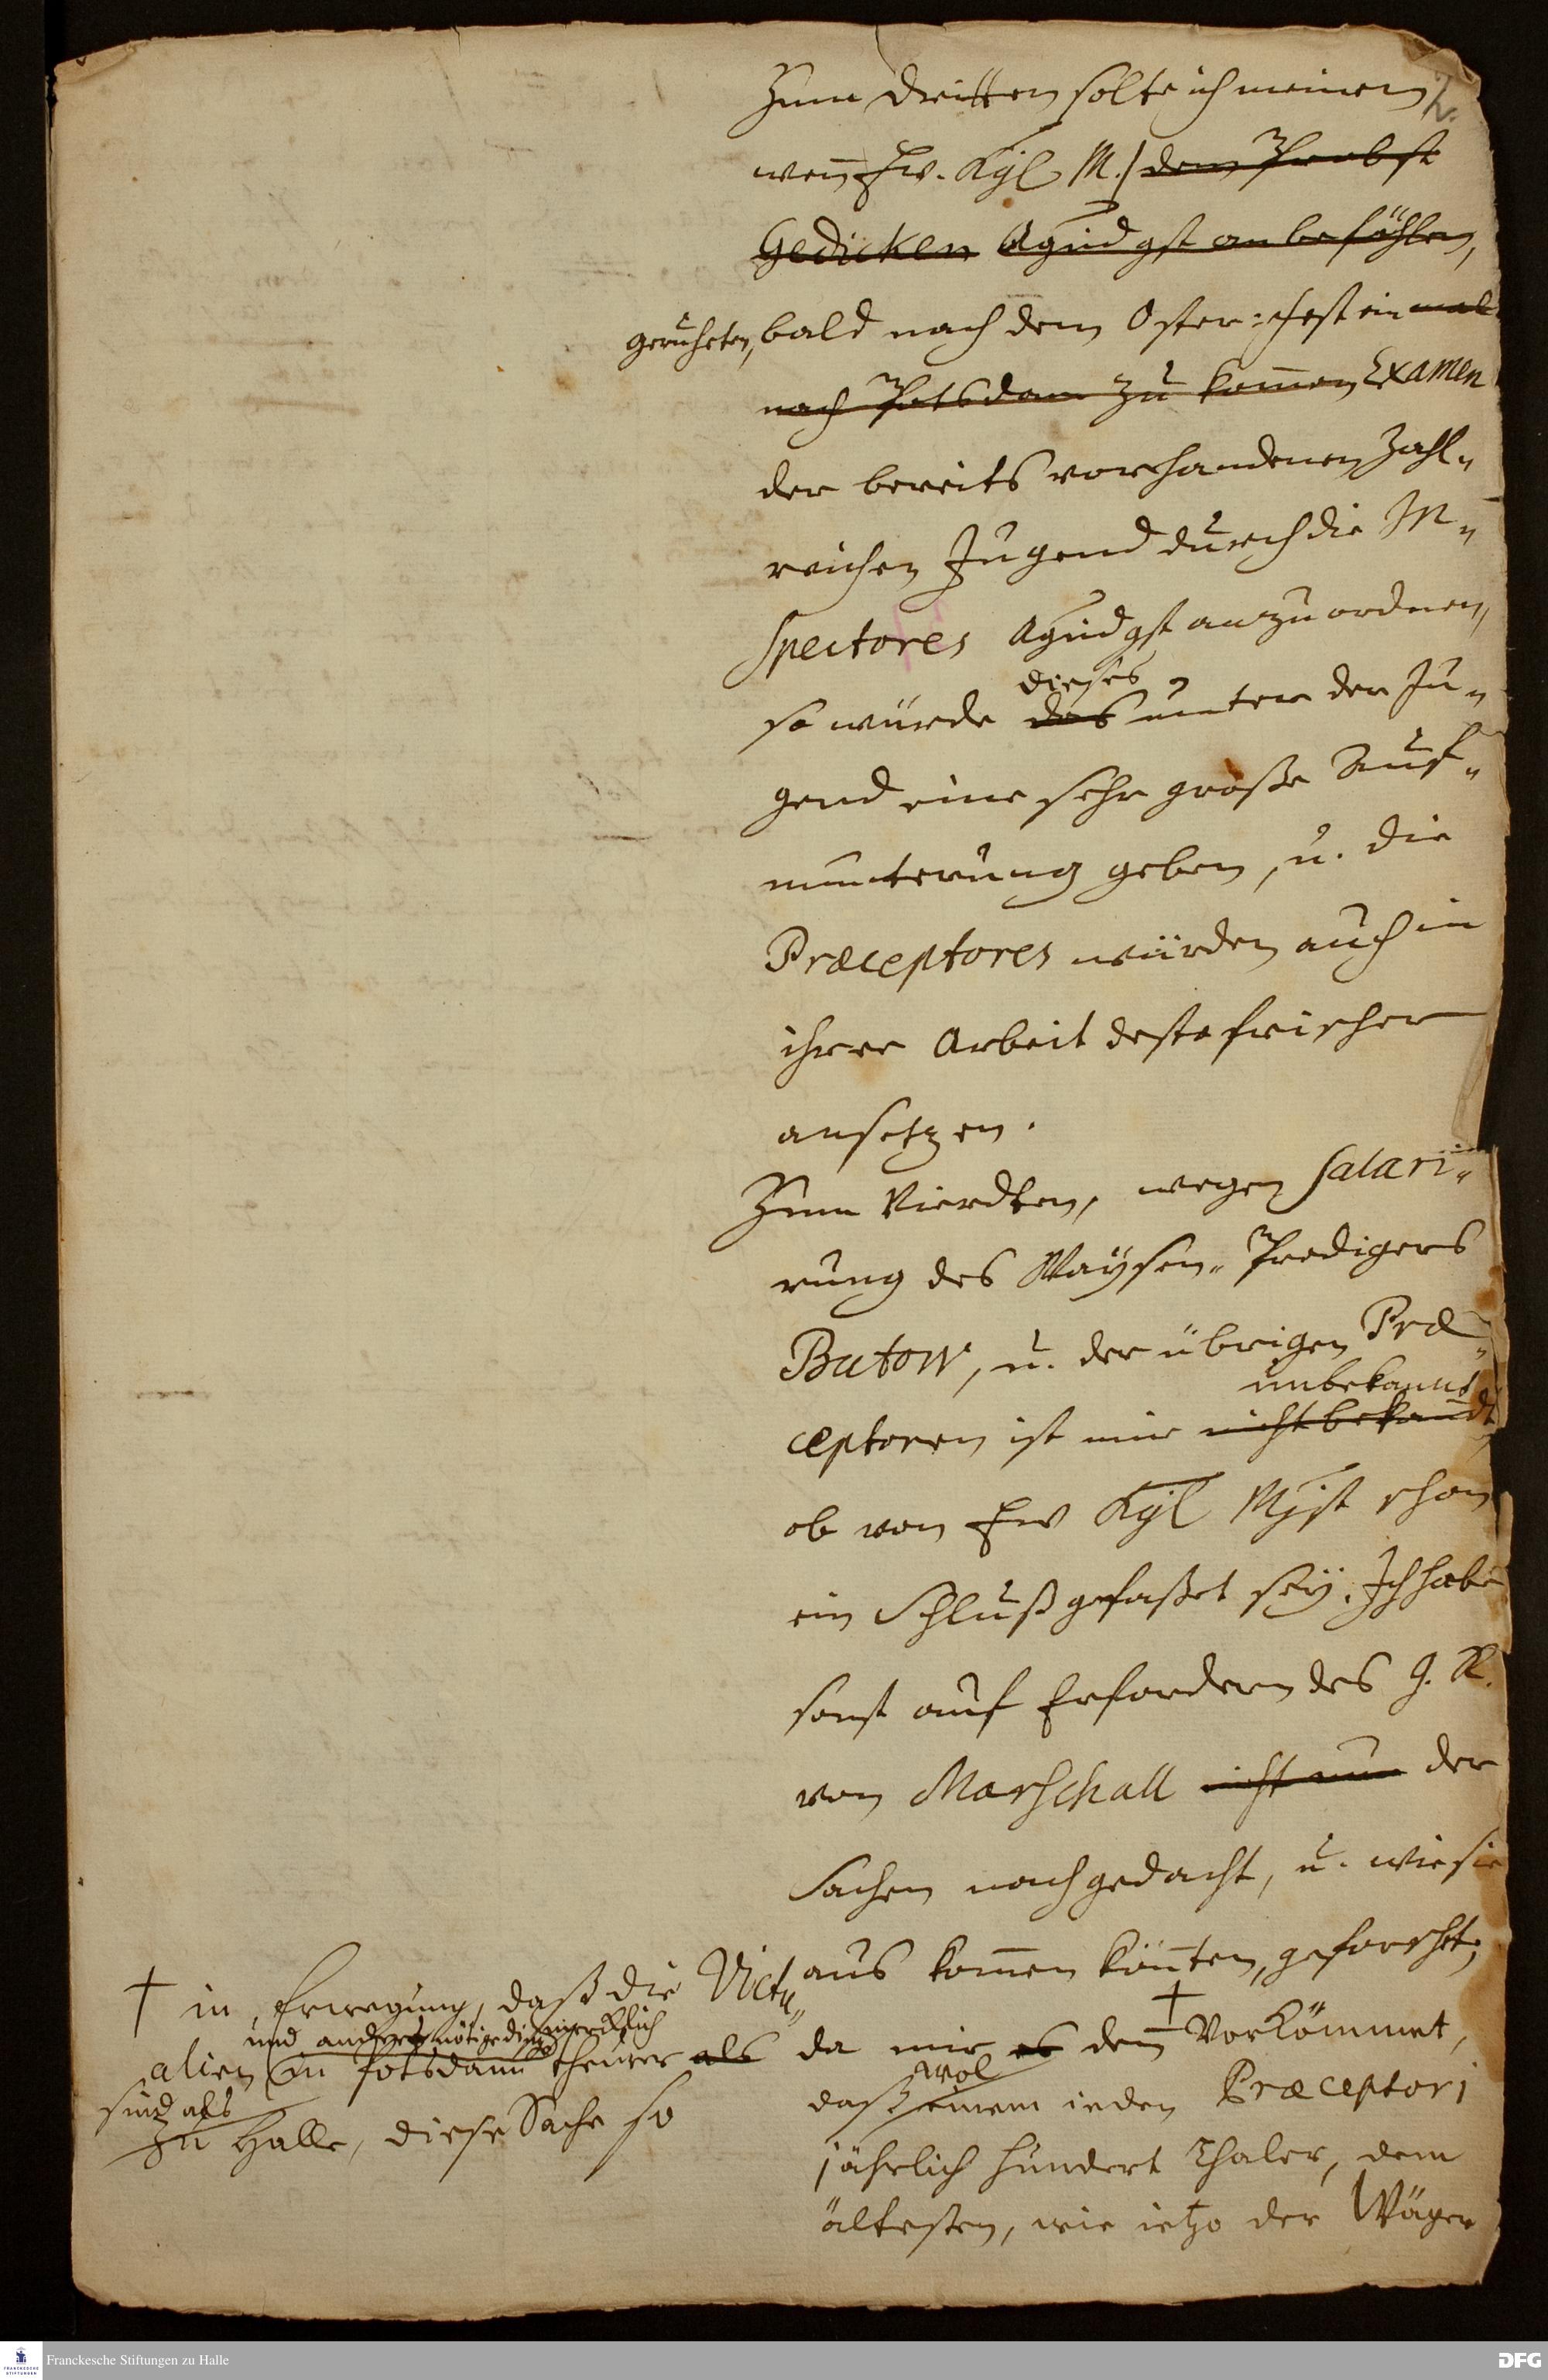 2.
Zum dritten solte ich meinen,
wenn Ew. Kgl M. dem Probst
Gedicken allergndgst anbeföhlen,
geruheten, bald nach dem Oster-Fest ein mal
nach Potsdam zu kommen Examen
der bereits vorhandenen Zahl-
reichen Jugend durch die In-
spectores allergndgst anzuordnen,
dieses
so würde das unter der Ju-
gend eine sehr große Auf-
munterung geben, u. die
Præceptores würden auch in
ihrer Arbeit desto frischer
ansetzen.
Zum Vierdten, wegen Salari-
rung des Waysen-Predigers
Butow, u. der übrigen Præ-
unbekannt
ceptoren ist mir nicht bekandt,
ob von Ew Kgl Mjst schon
ein Schluß gefaßet sey. Ich habe
sonst auf Erfordern des H.
von Marschall nicht nur der
Sachen nachgedacht, u. wie sie
aus kommen könten, geforschet;
da mir es denn † Vorkömmet,
wol
daß einem ieden Præceptori
jährlich hundert Thaler, dem
ältesten, wie ietzo der Wäger
† in Erwegung, daß die Victu-
und andere nötige dinge mercklich
alien in Potsdamm theurer als
sind als
zu Halle, diese Sache so
Franckesche Stiftungen zu Halle
FRANCKESCHE STIFTUNGEN
DFG